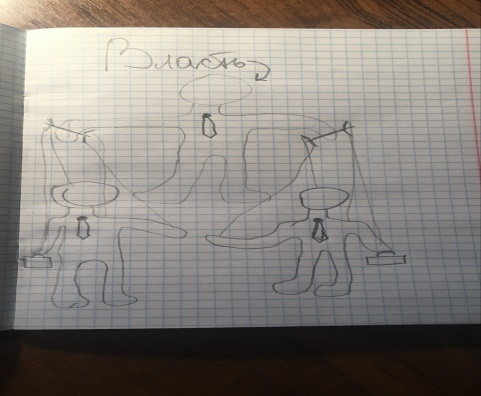 Власть